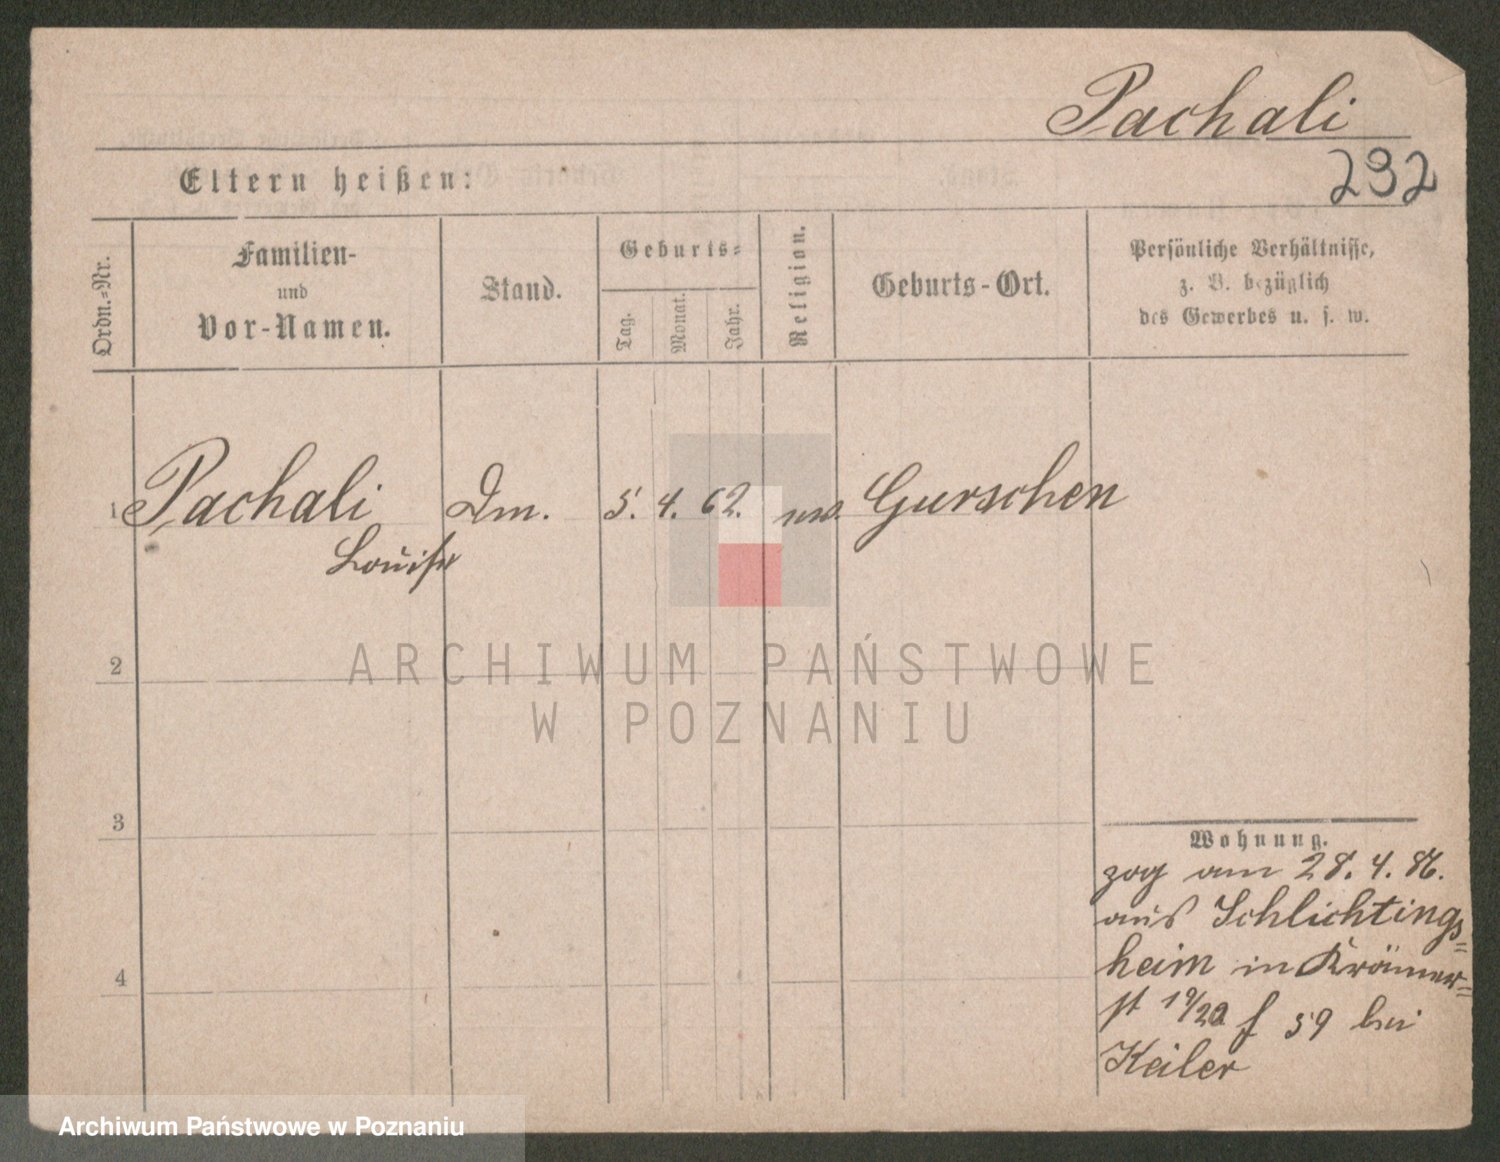 Pachali
232
Eltern heißen:
Ordn.=Nr.
Familien-
und
Vor-Namen.
Stand.
Geburts=
Tag.
Monat.
Jahr.
Religion.
Geburts-Ort.
Persönliche Verhältnisse,
z. B. bezüglich
des Gewerbes u. s. w.
1 Pachali Dm. 5. 4. 62. Gurschen
Louise
ARCHIWUM PAŃSTWOWE
W POZNANIU
2
3
4
Wohnung.
zog am 28. 4. 86.
aus Schlichtings=
heim in Krämer=
st 19/20 f 59 bei
Keiler
Archiwum Państwowe w Poznaniu